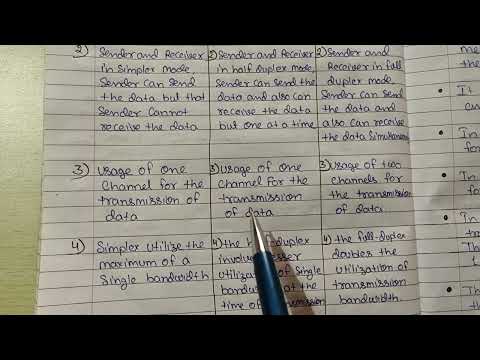 2) Sender and Receiver
in Simplex mode,
Sender can send
the data but that
Sender cannot
receive the data
2) Sender and Receiver
in half duplex mode,
Sender can send the
data and also can
receive the data
but one at a time
2) Sender and
Receiver in full
duplex mode
Sender can send
the data and
also can receive
the data Simultaneous
3) Usage of one
Channel for the
transmission of
data
3) Usage of one
channel For the
transmission
of data
3) Usage of two
channels for
the transmission
of data
4) Simplex utilize the
maximum of a
Single bandwidth
4) the duplex
involve lesser
utilization of Single
bandwidth at the
time of
4) the full-duplex
doubles the
utilization of
transmission
bandwidth.
me
the
• It
• In
for
• In
• Th